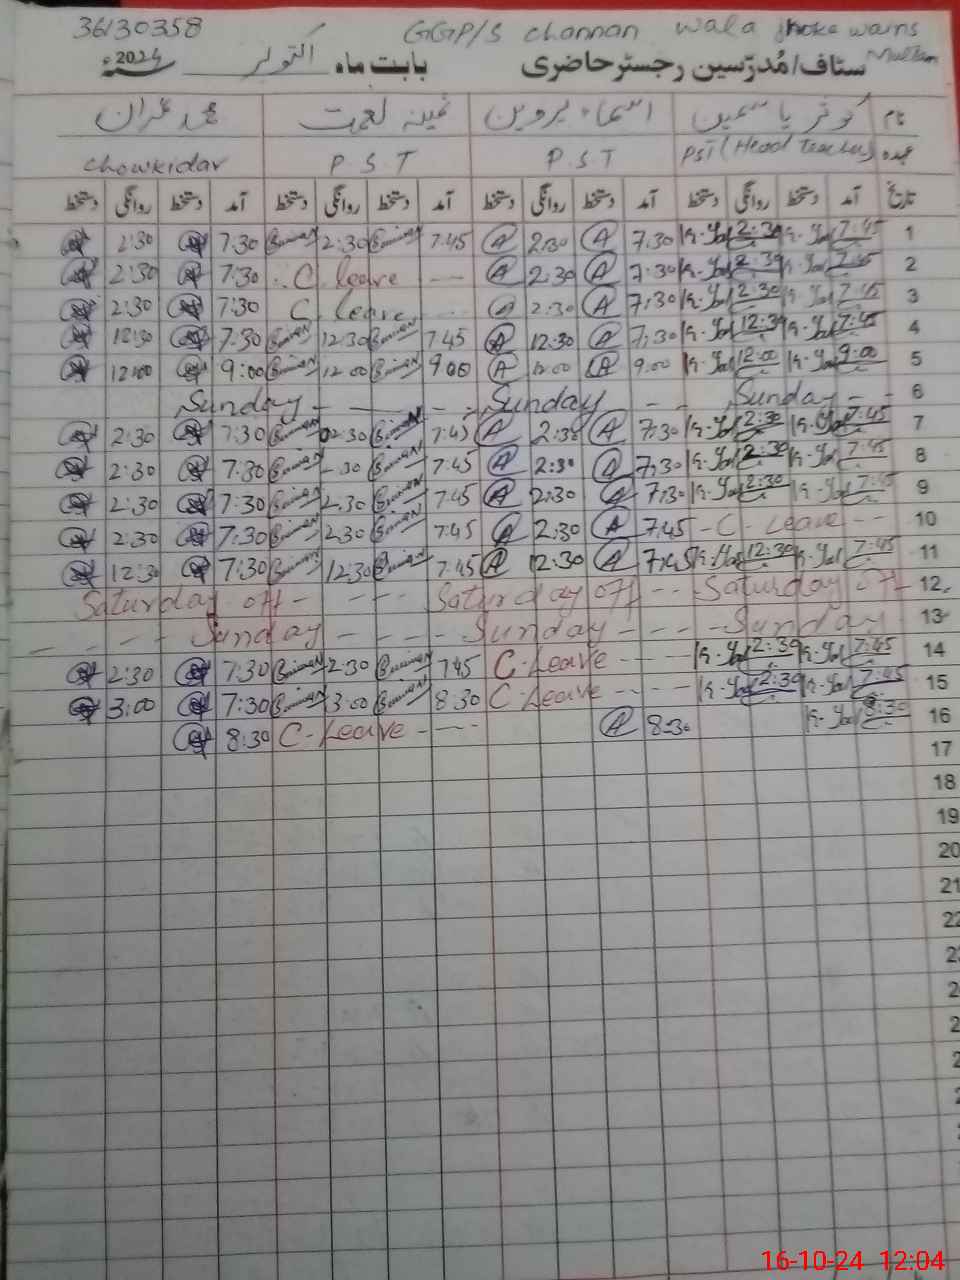 36130358 GGP/S channan wala jhoke wains Multan
سٹاف/مُدرّسین رجسٹر حاضری بابت ماہ اکتوبر 2024ء
نام کوثر یاسمین اسماء پروین ثمینہ نعمت محمد عمران
عہدہ PST (Head Teacher) P.S.T P.S.T chowkidar
تاریخ آمد دستخط روانگی دستخط آمد دستخط روانگی دستخط آمد دستخط روانگی دستخط آمد دستخط روانگی دستخط
1 7:45 2:30 7:30 A 2:30 A 7:45 2:30 7:30 2:30
2 7:45 2:30 7:30 A 2:30 A C. leave 7:30 2:30
3 7:45 2:30 7:30 A 2:30 A C. leave 7:30 2:30
4 7:45 12:30 7:30 A 12:30 A 7:45 12:30 7:30 12:30
5 9:00 12:00 9:00 A 12:00 A 9:00 12:00 9:00 12:00
6 Sunday Sunday Sunday
7 7:45 2:30 7:30 A 2:30 A 7:45 2:30 7:30 2:30
8 7:45 2:30 7:30 A 2:30 A 7:45 :30 7:30 2:30
9 7:45 2:30 7:30 A 2:30 A 7:45 2:30 7:30 2:30
10 C- Leave 7:45 A 2:30 A 7:45 2:30 7:30 2:30
11 7:45 12:30 7:45 A 12:30 A 7:45 12:30 7:30 12:30
12 Saturday off Saturday off Saturday off
13 Sunday Sunday Sunday
14 7:45 2:30 C-Leave 7:45 2:30 7:30 2:30
15 7:45 2:30 C-Leave 8:30 3:00 7:30 3:00
16 8:30 8:30 A C-Leave 8:30
17
18
19
20
21
22
16-10-24 12:04